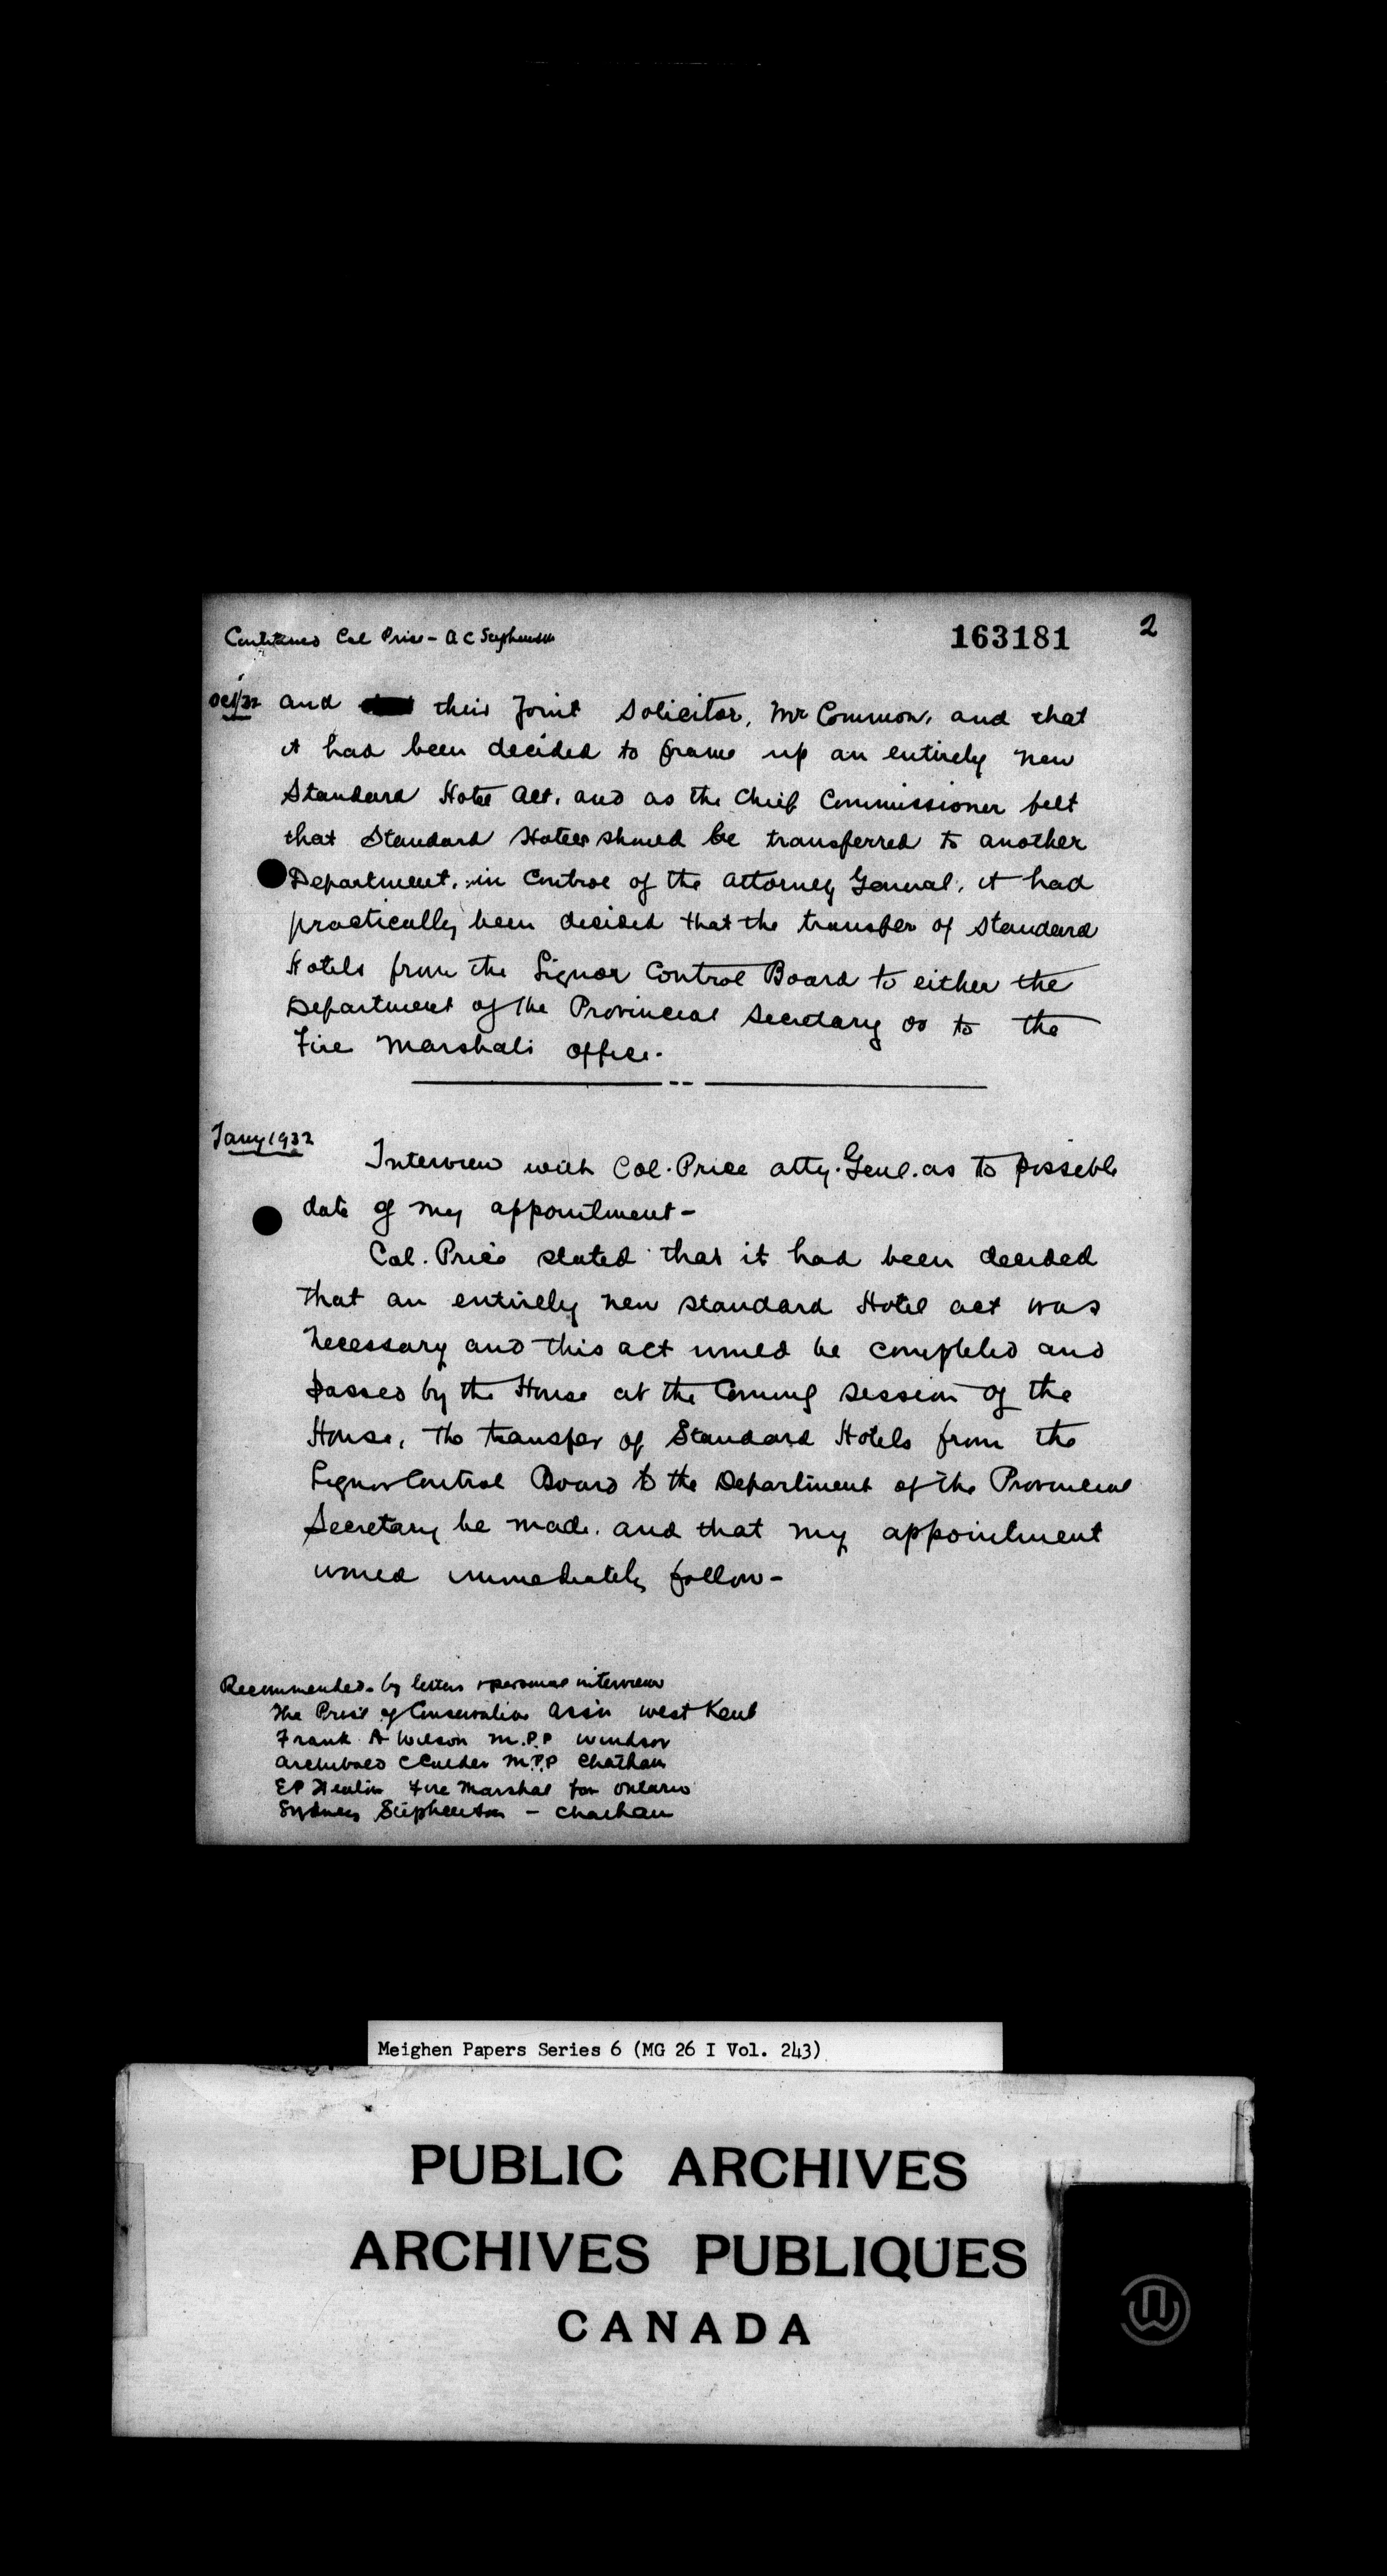 Continued Col Price - A C Stephenson
163181
2
Oct/32 and their Joint Solicitor, Mr Common, and that
it had been decided to frame up an entirely new
Standard Hotel Act, and as the Chief Commissioner felt
that Standard Hotels should be transferred to another
Department, in control of the Attorney General, it had
practically been decided that the transfer of Standard
Hotels from the Liquor Control Board to either the
Department of the Provincial Secretary or to the
Fire Marshals office.
Jany 1932
Interview with Col. Price Atty. Genl. as to possible
date of my appointment -
Col. Price stated that it had been decided
that an entirely new standard Hotel act was
necessary and this act would be completed and
passed by the House at the Coming session of the
House, the transfer of Standard Hotels from the
Liquor Control Board to the Department of the Provincial
Secretary be made. and that my appointment
would immediately follow -
Recommended by letters & personal interview
The Pres't of Conservative Ass'n West Kent
Frank A Wilson M.P.P Windsor
Archibald Calder M.P.P Chatham
EP Heaton Fire Marshal for Ontario
Sydney Stephenson - Chatham
Meighen Papers Series 6 (MG 26 I Vol. 243)
PUBLIC ARCHIVES
ARCHIVES PUBLIQUES
CANADA